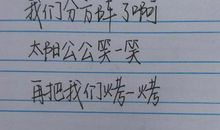 我们分方阵了啊
太阳公公笑一笑
再把我们烤一烤